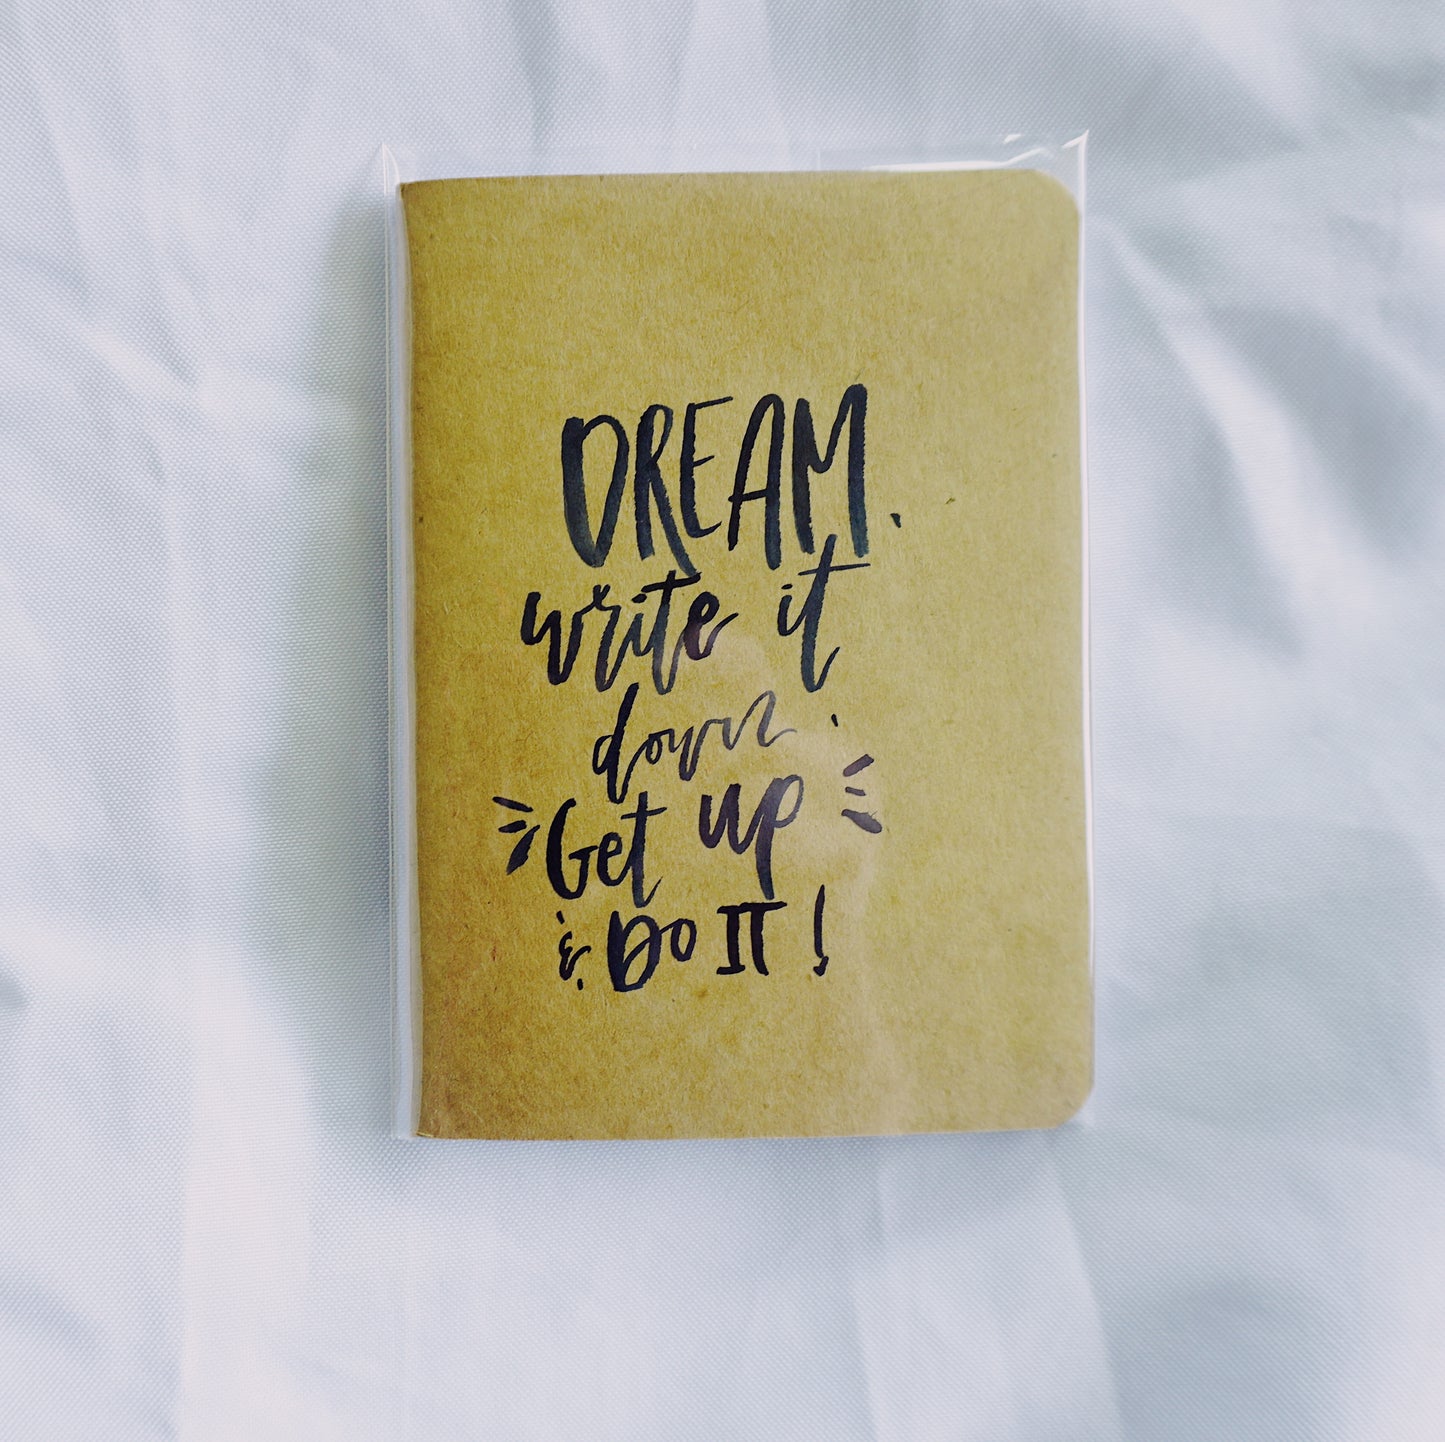 DREAM.
write it
down.
Get up
& DO IT!